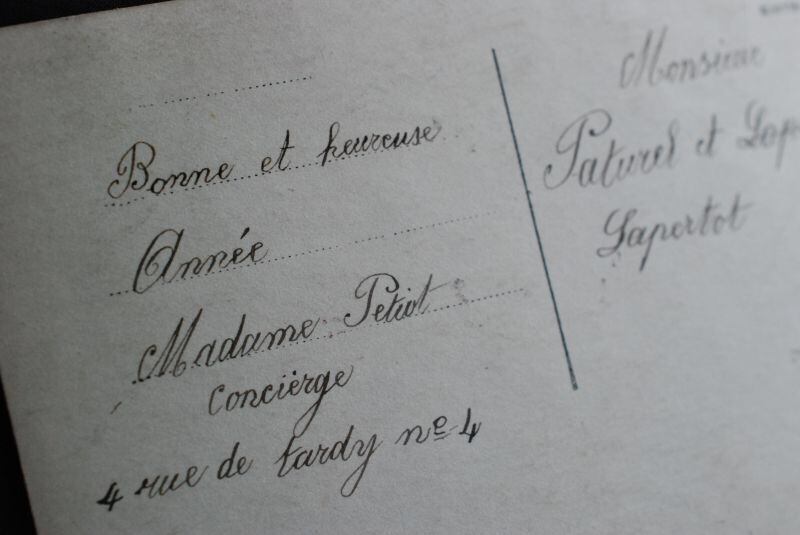 Bonne et heureuse
Année
Madame Petiot
concièrge
4 rue de tardy nº 4
Monsieur
Paturel et
Lapertot